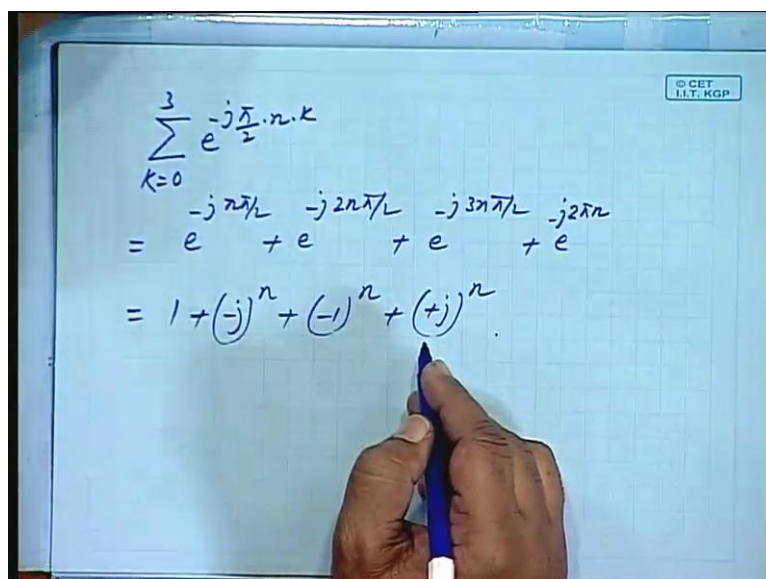 © CET
I.I.T. KGP
3
∑ e^{-j π/2 · n · k}
K=0
= e^{-j nπ/2} + e^{-j 2nπ/2} + e^{-j 3nπ/2} + e^{-j2πn}
= 1 + (-j)^n + (-1)^n + (+j)^n .